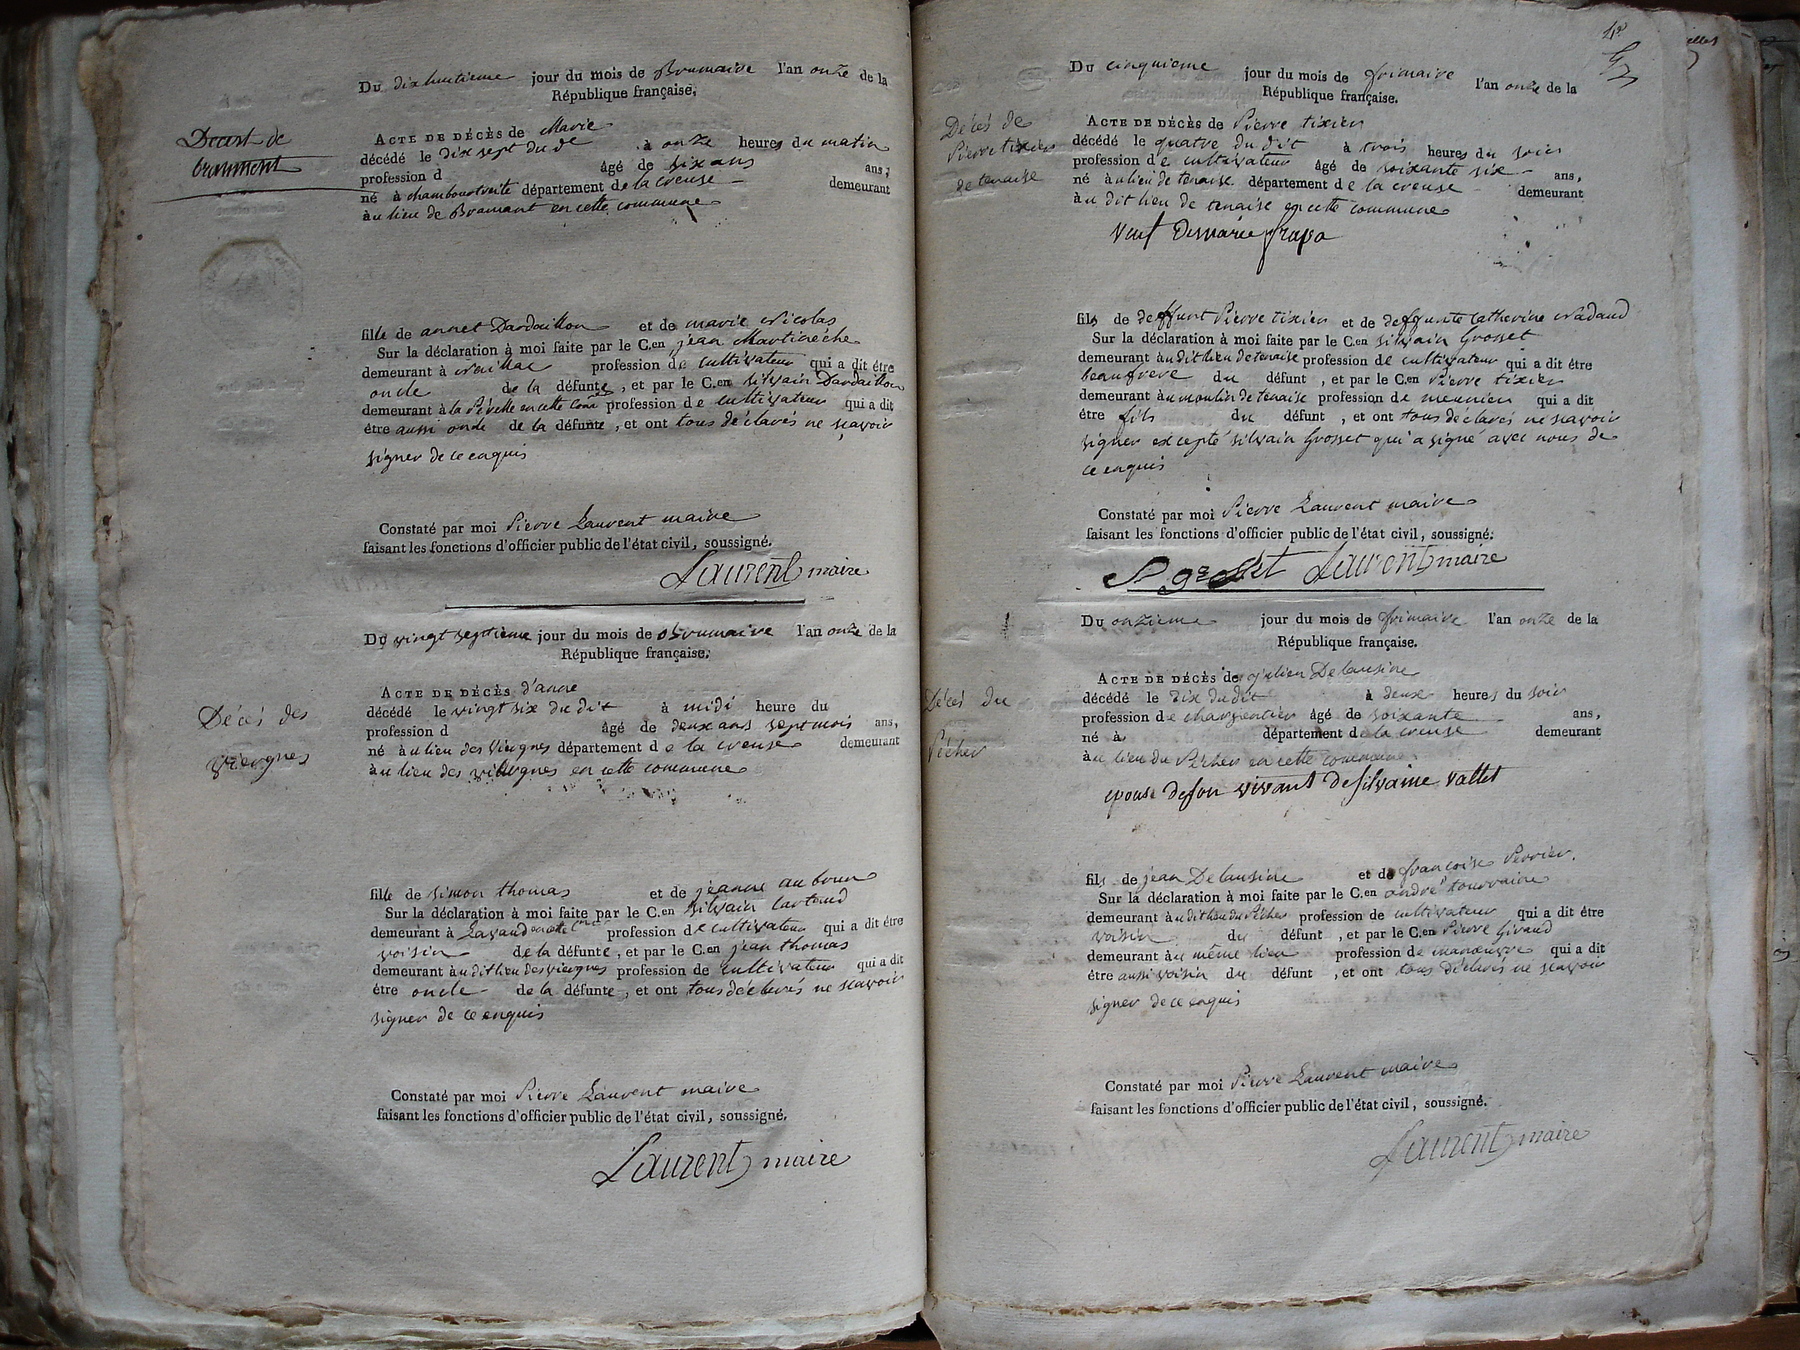 Du dix huitieme jour du mois de Brumaire l'an onze de la
République française.
Deces de
bramont
ACTE DE DÉCÈS de Marie
décédé le dix sept du dt à onze heures du matin
profession d âgé de six ans ans,
né à chamboutraite département de la creuse demeurant
au lieu de Bramant en cette commune
fille de annet Dardaillon et de marie Nicolas
Sur la déclaration à moi faite par le C.en jean Martinèche
demeurant à profession de cultivateur qui a dit être
oncle de la défunte, et par le C.en silvain Dardaillon
demeurant à la en cette profession de cultivateur qui a dit
être aussi oncle de la défunte, et ont tous déclarés ne scavoir
signer de ce enquis
Constaté par moi Pierre Laurent maire
faisant les fonctions d'officier public de l'état civil, soussigné.
Laurent maire
Du vingt septieme jour du mois de Brumaire l'an onze de la
République française.
Décès des
viergnes
ACTE DE DÉCÈS d'anne
décédé le vingt six du dit à midi heure du
profession d âgé de deux ans sept mois ans,
né au lieu des viergnes département de la creuse demeurant
au lieu des viergnes en cette commune
fille de simon thomas et de jeanne aubrun
Sur la déclaration à moi faite par le C.en silvain
demeurant à profession de cultivateur qui a dit être
voisin de la défunte, et par le C.en jean thomas
demeurant audit lieu des viergnes profession de cultivateur qui a dit
être oncle de la défunte, et ont tous déclarés ne scavoir
signer de ce enquis
Constaté par moi Pierre Laurent maire
faisant les fonctions d'officier public de l'état civil, soussigné.
Laurent maire
Du cinquieme jour du mois de frimaire l'an onze de la
République française.
Décès de
Pierre tixier
de tenaise
ACTE DE DÉCÈS de Pierre tixier
décédé le quatre du dit à trois heures du soir
profession de cultivateur âgé de soixante six ans,
né au lieu de tenaise département de la creuse demeurant
au dit lieu de tenaise en cette commune
veuf de marie
fils de deffunt Pierre tixier et de deffunte Catherine Nadaud
Sur la déclaration à moi faite par le C.en silvain Grosset
demeurant au dit lieu de tenaise profession de cultivateur qui a dit étre
beaufrere du défunt, et par le C.en Pierre tixier
demeurant au moulin de tenaise profession de meunier qui a dit
étre fils du défunt, et ont tous déclarés ne scavoir
signer excepté silvain Grosset qui a signé avec nous de
ce enquis
Constaté par moi Pierre Laurent maire
faisant les fonctions d'officier public de l'état civil, soussigné.
Laurent maire
Du onzieme jour du mois de frimaire l'an onze de la
République française.
Décès du
Pécher
ACTE DE DÉCÈS de julien Delausine
décédé le dix du dit à deux heures du soir
profession de charpentier âgé de soixante ans,
né à département de la creuse demeurant
au lieu du Pécher en cette commune
epoux de son vivant de silvaine vallet
fils de jean Delausine et de francoise Perrier.
Sur la déclaration à moi faite par le C.en andré tourraine
demeurant au dit lieu du Pécher profession de cultivateur qui a dit être
voisin du défunt, et par le C.en Pierre Giraud
demeurant au même lieu profession de manœuvre qui a dit
étre aussi voisin du défunt, et ont tous déclarés ne scavoir
signer de ce enquis
Constaté par moi Pierre Laurent maire
faisant les fonctions d'officier public de l'état civil, soussigné.
Laurent maire